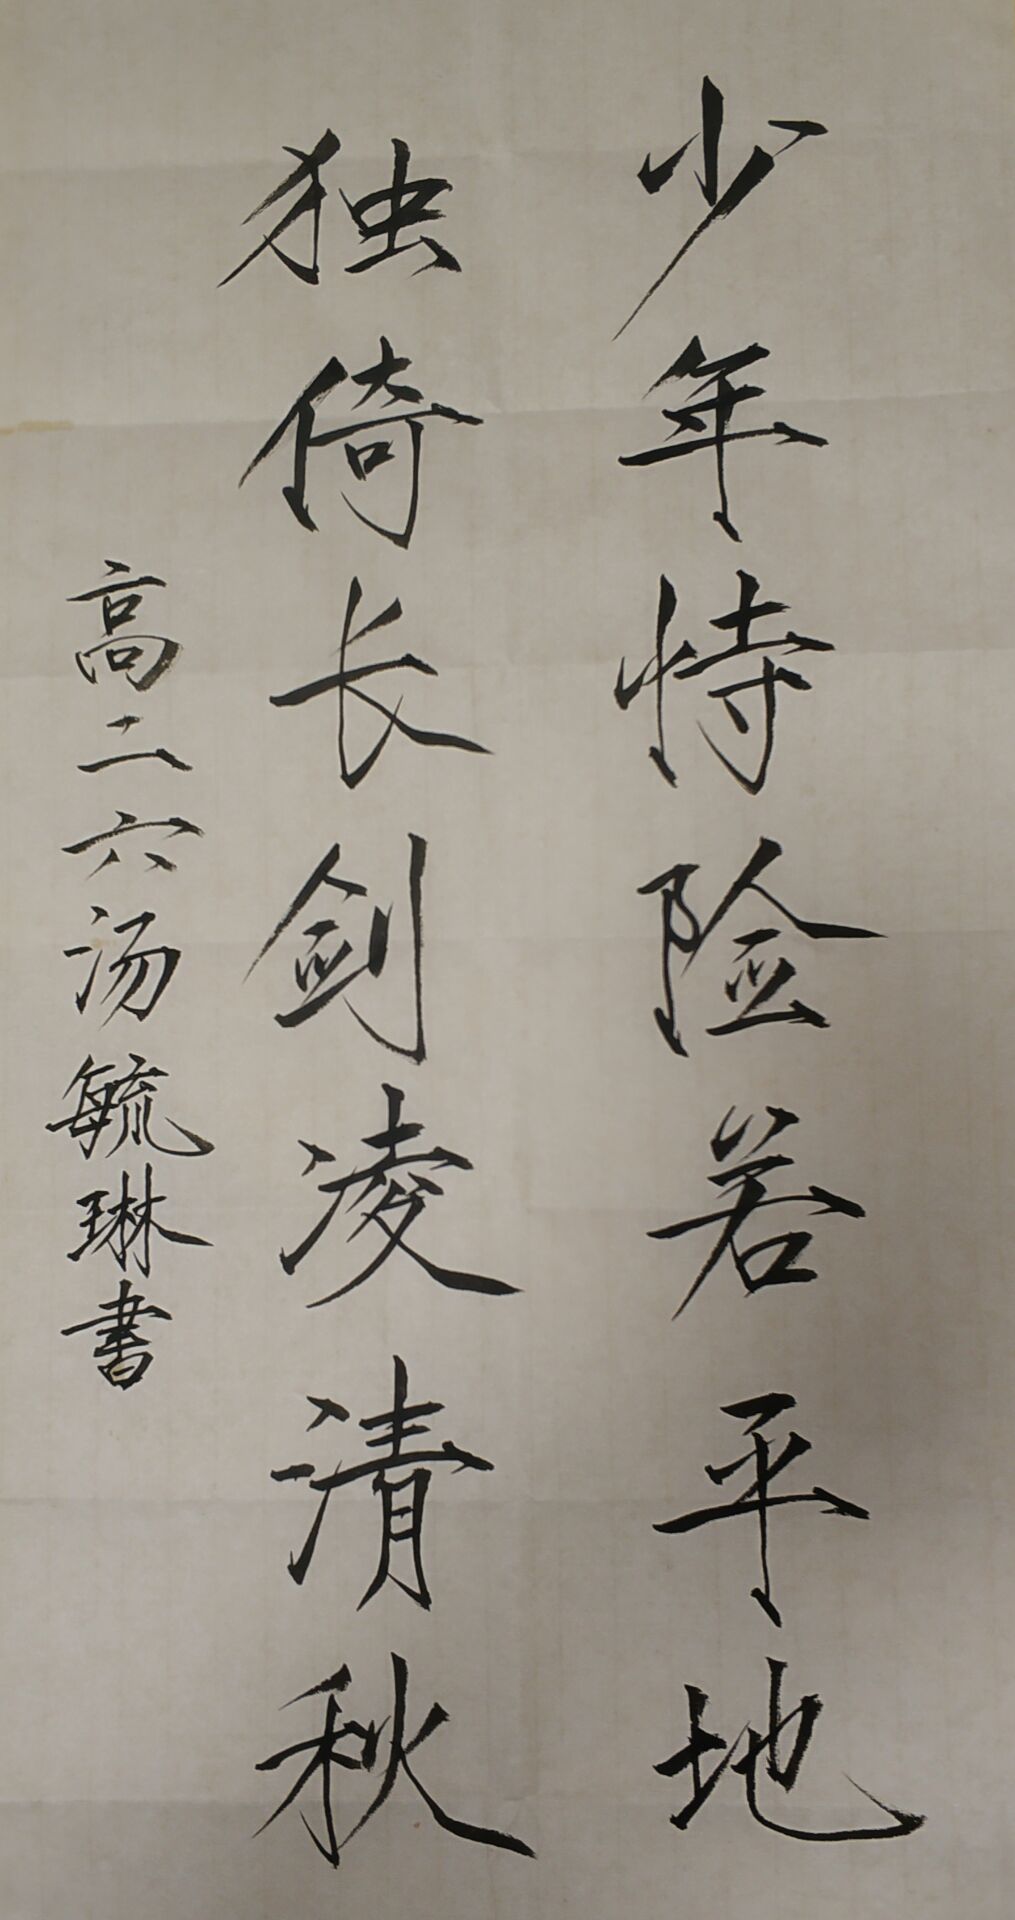 少年恃险若平地
独倚长剑凌清秋
高二六汤毓琳書